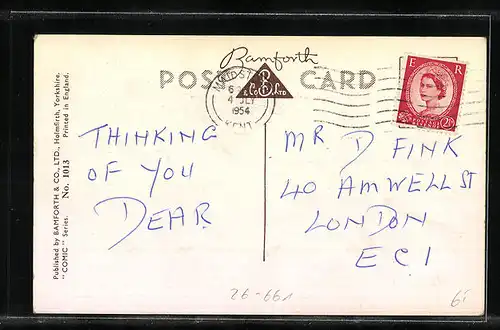 Bamforth
POST CARD
B
& Co LTD
4 JLY
1954
KENT
E R
2½
Published by BAMFORTH & CO., LTD., Holmfirth, Yorkshire.
"COMIC" Series. No. 1013 Printed in England.
THINKING
OF YOU
DEAR
MR D FINK
40 AMWELL ST
LONDON
EC1
26-661